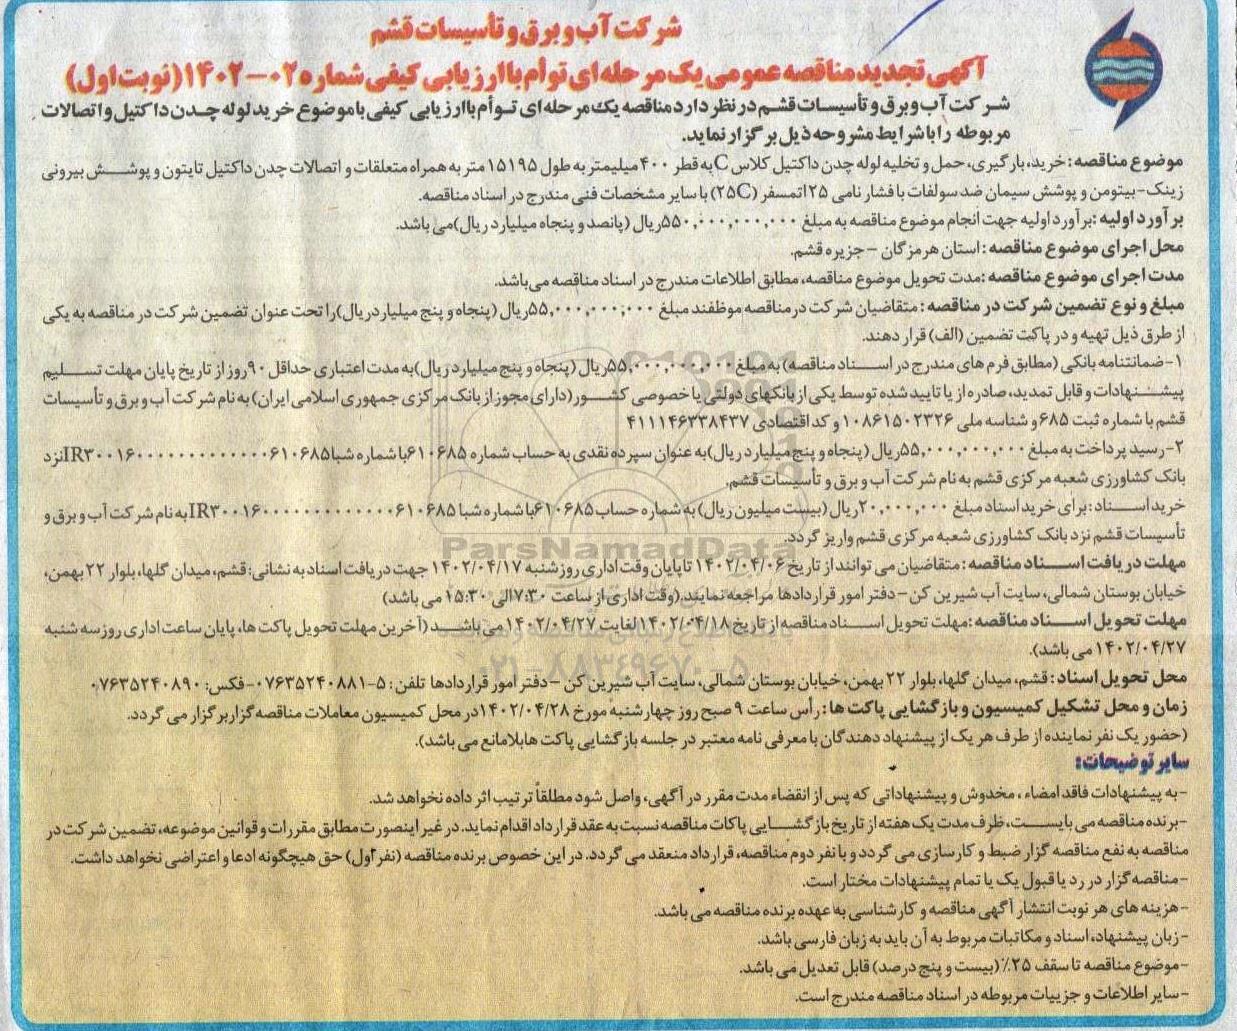 شرکت آب و برق و تأسیسات قشم
آگهی تجدید مناقصه عمومی یک مرحله ای توأم با ارزیابی کیفی شماره ۰۲-۱۴۰۲ (نوبت اول)
شرکت آب و برق و تأسیسات قشم در نظر دارد مناقصه یک مرحله ای توأم با ارزیابی کیفی با موضوع خرید لوله چدن داکتیل و اتصالات
مربوطه را با شرایط مشروحه ذیل برگزار نماید.
موضوع مناقصه: خرید، بارگیری، حمل و تخلیه لوله چدن داکتیل کلاس C به قطر ۴۰۰ میلیمتر به طول ۱۵۱۹۵ متر به همراه متعلقات و اتصالات چدن داکتیل تایتون و پوشش بیرونی
زینک-بیتومن و پوشش سیمان ضد سولفات با فشار نامی ۲۵ اتمسفر (۲۵C) با سایر مشخصات فنی مندرج در اسناد مناقصه.
برآورد اولیه: برآورد اولیه جهت انجام موضوع مناقصه به مبلغ ۵۵۰,۰۰۰,۰۰۰,۰۰۰ ریال (پانصد و پنجاه میلیارد ریال) می باشد.
محل اجرای موضوع مناقصه: استان هرمزگان - جزیره قشم.
مدت اجرای موضوع مناقصه: مدت تحویل موضوع مناقصه، مطابق اطلاعات مندرج در اسناد مناقصه می باشد.
مبلغ و نوع تضمین شرکت در مناقصه: متقاضیان شرکت در مناقصه موظفند مبلغ ۵۵,۰۰۰,۰۰۰,۰۰۰ ریال (پنجاه و پنج میلیارد ریال) را تحت عنوان تضمین شرکت در مناقصه به یکی
از طرق ذیل تهیه و در پاکت تضمین (الف) قرار دهند.
۱-ضمانتنامه بانکی (مطابق فرم های مندرج در اسناد مناقصه) به مبلغ ۵۵,۰۰۰,۰۰۰,۰۰۰ ریال (پنجاه و پنج میلیارد ریال) به مدت اعتباری حداقل ۹۰ روز از تاریخ پایان مهلت تسلیم
پیشنهادات و قابل تمدید، صادره از یا تایید شده توسط یکی از بانکهای دولتی یا خصوصی کشور (دارای مجوز از بانک مرکزی جمهوری اسلامی ایران) به نام شرکت آب و برق و تأسیسات
قشم با شماره ثبت ۶۸۵ و شناسه ملی ۱۰۸۶۱۵۰۲۳۲۶ و کد اقتصادی ۴۱۱۱۴۶۳۳۸۴۳۷
۲-رسید پرداخت به مبلغ ۵۵,۰۰۰,۰۰۰,۰۰۰ ریال (پنجاه و پنج میلیارد ریال) به عنوان سپرده نقدی به حساب شماره ۶۱۰۶۸۵ با شماره شبا IR۳۰۰۱۶۰۰۰۰۰۰۰۰۰۰۰۰۰۶۱۰۶۸۵ نزد
بانک کشاورزی شعبه مرکزی قشم به نام شرکت آب و برق و تأسیسات قشم.
خرید اسناد: برای خرید اسناد مبلغ ۲۰,۰۰۰,۰۰۰ ریال (بیست میلیون ریال) به شماره حساب ۶۱۰۶۸۵ با شماره شبا IR۳۰۰۱۶۰۰۰۰۰۰۰۰۰۰۰۰۰۶۱۰۶۸۵ به نام شرکت آب و برق و
تأسیسات قشم نزد بانک کشاورزی شعبه مرکزی قشم واریز گردد.
ParsNamadData
مهلت دریافت اسناد مناقصه: متقاضیان می توانند از تاریخ ۱۴۰۲/۰۴/۰۶ تا پایان وقت اداری روز شنبه ۱۴۰۲/۰۴/۱۷ جهت دریافت اسناد به نشانی: قشم، میدان گلها، بلوار ۲۲ بهمن،
خیابان بوستان شمالی، سایت آب شیرین کن - دفتر امور قراردادها مراجعه نمایند. (وقت اداری از ساعت ۷:۳۰ الی ۱۵:۳۰ می باشد)
مهلت تحویل اسناد مناقصه: مهلت تحویل اسناد مناقصه از تاریخ ۱۴۰۲/۰۴/۱۸ لغایت ۱۴۰۲/۰۴/۲۷ می باشد (آخرین مهلت تحویل پاکت ها، پایان ساعت اداری روز سه شنبه
۱۴۰۲/۰۴/۲۷ می باشد).
۰۲۱-۸۸۳۴۹۶۷۰-۵
محل تحویل اسناد: قشم، میدان گلها، بلوار ۲۲ بهمن، خیابان بوستان شمالی، سایت آب شیرین کن - دفتر امور قراردادها تلفن: ۵-۰۷۶۳۵۲۴۰۸۸۱-فکس: ۰۷۶۳۵۲۴۰۸۹۰
زمان و محل تشکیل کمیسیون و بازگشایی پاکت ها: رأس ساعت ۹ صبح روز چهارشنبه مورخ ۱۴۰۲/۰۴/۲۸ در محل کمیسیون معاملات مناقصه گزار برگزار می گردد.
(حضور یک نفر نماینده از طرف هر یک از پیشنهاد دهندگان با معرفی نامه معتبر در جلسه بازگشایی پاکت ها بلامانع می باشد).
سایر توضیحات:
-به پیشنهادات فاقد امضاء، مخدوش و پیشنهاداتی که پس از انقضاء مدت مقرر در آگهی، واصل شود مطلقاً ترتیب اثر داده نخواهد شد.
-برنده مناقصه می بایست، ظرف مدت یک هفته از تاریخ بازگشایی پاکات مناقصه نسبت به عقد قرارداد اقدام نماید. در غیر اینصورت مطابق مقررات و قوانین موضوعه، تضمین شرکت در
مناقصه به نفع مناقصه گزار ضبط و کارسازی می گردد و با نفر دوم مناقصه، قرارداد منعقد می گردد. در این خصوص برنده مناقصه (نفر اول) حق هیچگونه ادعا و اعتراضی نخواهد داشت.
-مناقصه گزار در رد یا قبول یک یا تمام پیشنهادات مختار است.
-هزینه های هر نوبت انتشار آگهی مناقصه و کارشناسی به عهده برنده مناقصه می باشد.
-زبان پیشنهاد، اسناد و مکاتبات مربوط به آن باید به زبان فارسی باشد.
-موضوع مناقصه تا سقف ۲۵٪ (بیست و پنج درصد) قابل تعدیل می باشد.
-سایر اطلاعات و جزییات مربوطه در اسناد مناقصه مندرج است.